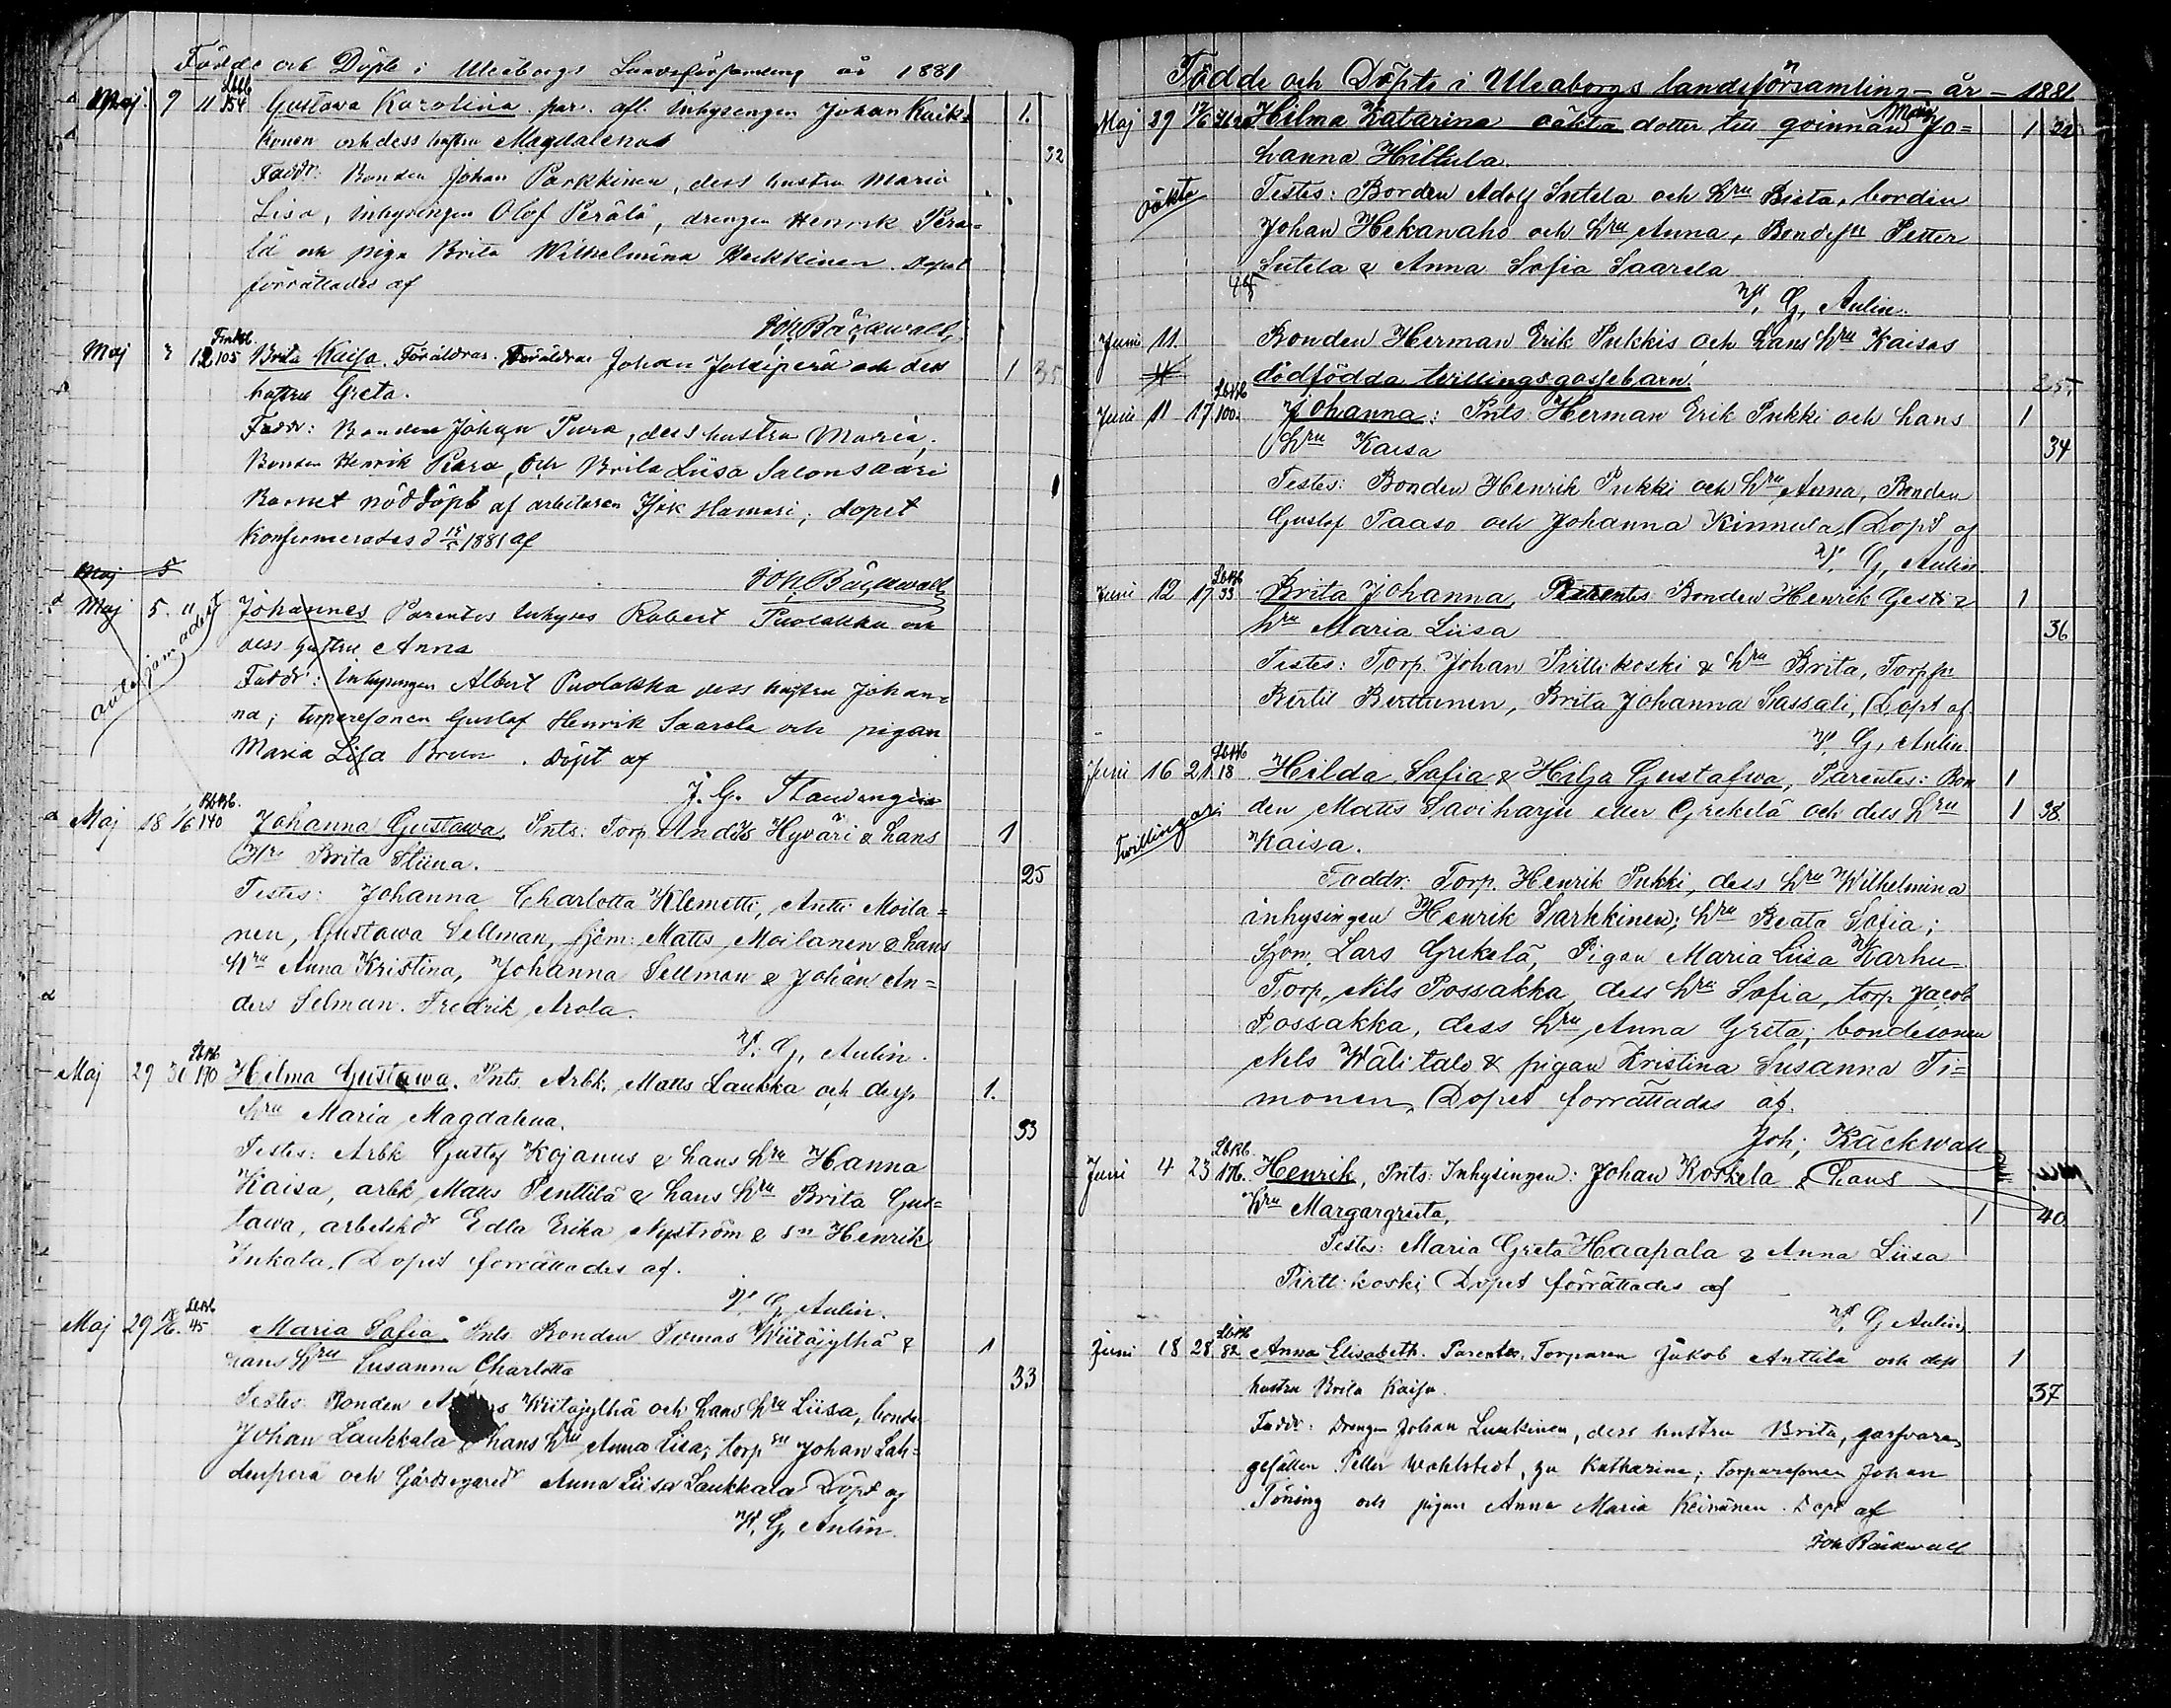 Födde och Döpte i Uleåborgs Landsförsamling år 1881
Maj 9 11 154 Gustava Karolina. par. afl. inhysingen Johan Kaik-
konen och dess hustru Magdalena 1. 32
Faddr: Bonden Johan Parkkinen, dess hustru Maria
Lisa, inhysingen Olof Perälä, drengen Henrik Perä-
lä och piga Brita Wilhelmina Heikkinen. Dopet
förrättades af
Joh. Bäckwall
Maj 3 12 105 Brita Kaisa. Föräldrar. Föräldrar Johan Jokiperä och dess 1 35
hustru Greta.
Faddr: Bonden Johan Pura, dess hustru Maria,
Bonden Henrik Pura, och Brita Liisa Salonsaari
Barnet nöddöpt af arbetaren Isak Hamari; dopet
Konfirmerades d 15/5 1881 af
Joh. Bäckwall
Maj 5
Maj 5. 11 Johannes Parentes Inhyses Robert Puolakka och
dess hustru Anna
antej jam adest
Faddr: Inhysingen Albert Puolakka dess hustru Johan-
na; torparesonen Gustaf Henrik Saarela och pigan
Maria Lisa Bruun. Döpt af
J. G.
Maj 18 1/6 140 Johanna Gustawa, Pnts: Torp Anders Hyväri & hans 1
Hru Brita Stiina. 25
Testes: Johanna Charlotta Klemetti, Antti Moila=
nen, Gustawa Sellman, Matts Moilanen & hans
Hru Anna Kristina, Johanna Sellman & Johan An=
ders Selman. Fredrik Arola.
W. G. Aulin.
Maj 29 31 170 Hilma Gustawa. Pnts Arbk. Matts Laukka och dess 1.
hru Maria Magdalena. 33
Testes: Arbk Gustaf Kojanus & hans hru Hanna
Kaisa, arbk Matts Penttilä & hans hru Brita Gus=
tawa, arbetskdr Edla Erika Nyström & sn Henrik
Inkala. Dopet förrättades af.
W. G. Aulin.
Maj 29 /6. 45 Maria Sofia. Pnts Bonden Tomas Wiitajylhä & 1
hans hru Susanna Charlotta 33
Testes: Bonden Wiitajylhä och hans hru Liisa, bonde
Johan Laukkala & hans hru Anna Lisa, torp sn Johan Lah=
denperä och Gårdsegaredr Anna Liisa Laukkala Döpt af
W. G. Aulin.
Födde och Döpte i Uleaborgs landsförsamling år 1881
Maj 29 17/6 Hilma Katarina oäkta dotter till qvinnan Maria Jo= 1 22
hanna Hiltula
oäkta
Testes: Bonden Adolf Sutela och hru Brita, bonden
Johan Hekanaho och hru Anna, Bondesn Petter
Sutela & Anna Sofia Saarela
W. G. Aulin.
Juni 11. Bonden Herman Erik Pukkis och hans hru Kaisas
dödfödda twillingsgossebarn 25
Juni 11 17 100. Johanna: Pnts: Herman Erik Pukki och hans 1
hru Kaisa 34
Testes: Bonden Henrik Pukki och hru Anna, Bonden
Gustaf Paaso och Johanna Kinnula, Döpt af
W. G. Aulin
Juni 12 17 33 Brita Johanna, Parentes: Bonden Henrik Gesti & 1
hru Maria Liisa 36
Testes: Torp. Johan Pirttikoski & hru Brita, Torpsn
Bertil Berttunen, Brita Johanna Sassali, Döpt af
W. G. Aulin.
Juni 16 21. 18 Hilda Sofia & Hilja Gustafwa, Parentes: Bon 1
den Matts Saviharju eller Grekelä och dess hru 1 38
Kaisa.
Twillingar
Faddr. Torp. Henrik Pukki, dess hru Wilhelmina
inhysingen Henrik Sarkkinen; hru Beata Sofia;
Lars Grekelä, Pigan Maria Liisa Karhu
Torp. Nils Possakka, dess hru Sofia, torp Jacob
Possakka, dess hru Anna Greta; bondesonen
Nils Wälitalo & pigan Kristina Susanna Ti=
monen, Dopet forrättades af.
Joh. Bäckwall
Juni 4 23 176. Henrik, Pnts: Inhysingen: Johan Koskela & hans
Hru Margargreeta, 1 40
Testes: Maria Greta Haapala & Anna Liisa
Pirttikoski Dopet förrättades af
W. G Aulin
Juni 18 28 82 Anna Elisabeth. Parentes. Torparen Jakob Anttila och dess 1
hustru Brita Kaisa. 37
Faddr: Drengen Johan Luukinen, dess hustru Brita, garfvare-
gesällen Petter Wahlstedt, Katharina; Torparesonen Johan
Töning och pigan Anna Maria Keinänen. Döpt af
Joh Bäckwall